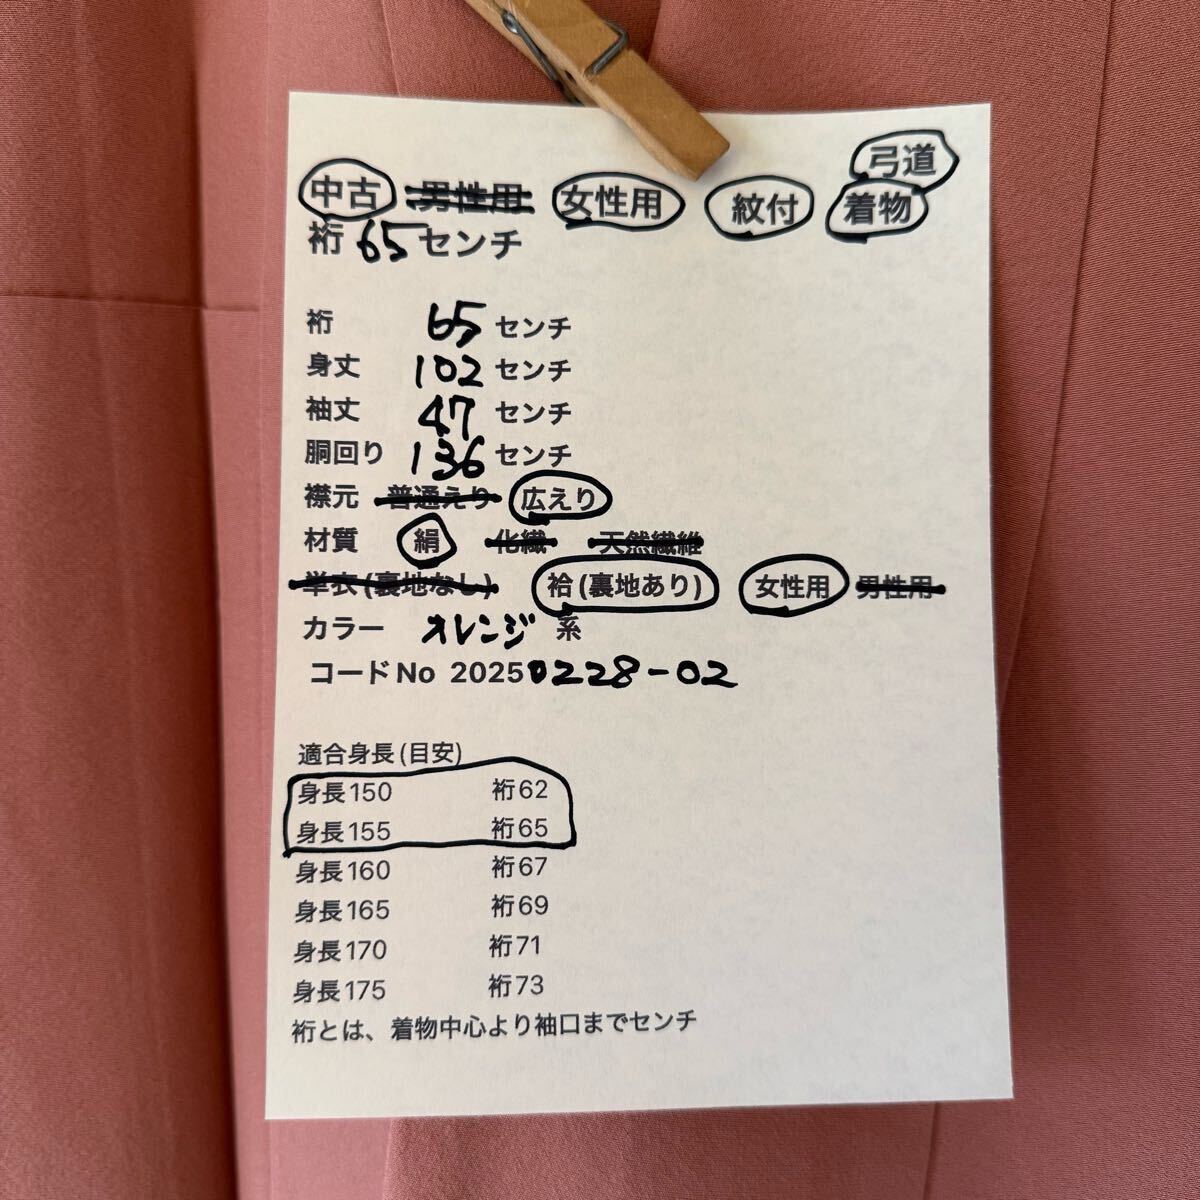 弓道
中古 男性用 女性用 紋付 着物
裄 65センチ
裄 65 センチ
身丈 102 センチ
袖丈 47 センチ
胴回り 136 センチ
襟元 普通えり 広えり
材質 絹 化繊 天然繊維
単衣(裏地なし) 袷(裏地あり) 女性用 男性用
カラー オレンジ 系
コードNo 20250228-02
適合身長(目安)
身長150 裄62
身長155 裄65
身長160 裄67
身長165 裄69
身長170 裄71
身長175 裄73
裄とは、着物中心より袖口までセンチ